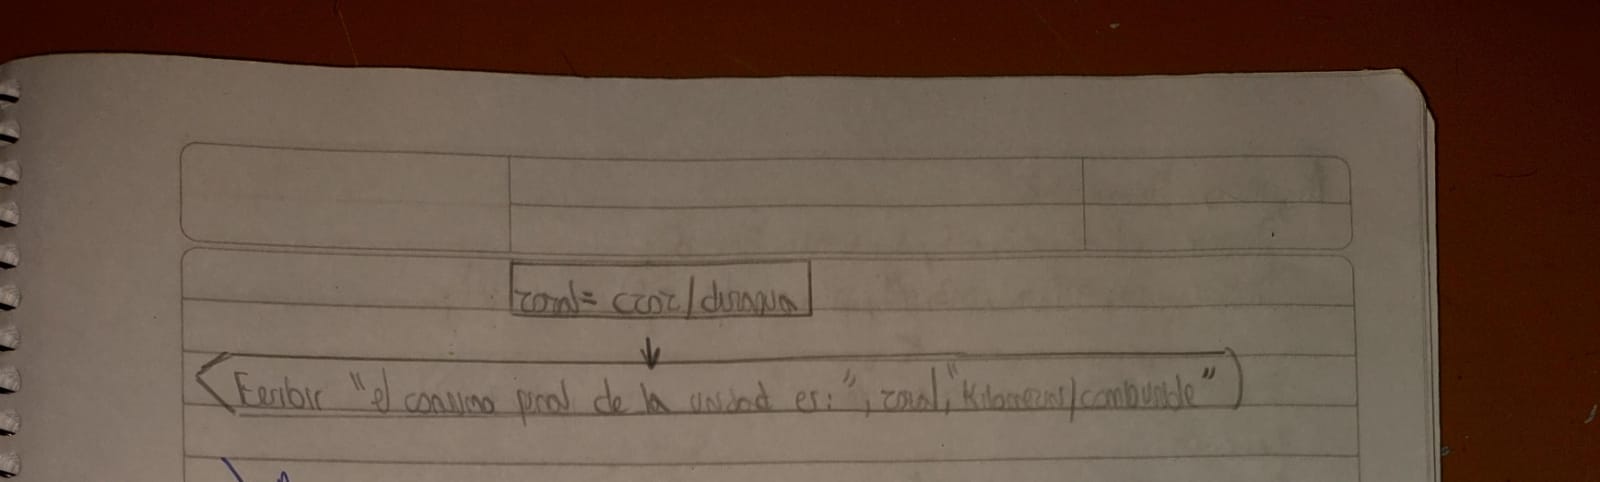 total= ccot/distancia
Escribir "el consumo final de la unidad es:", total, "Kilometros/combustible"